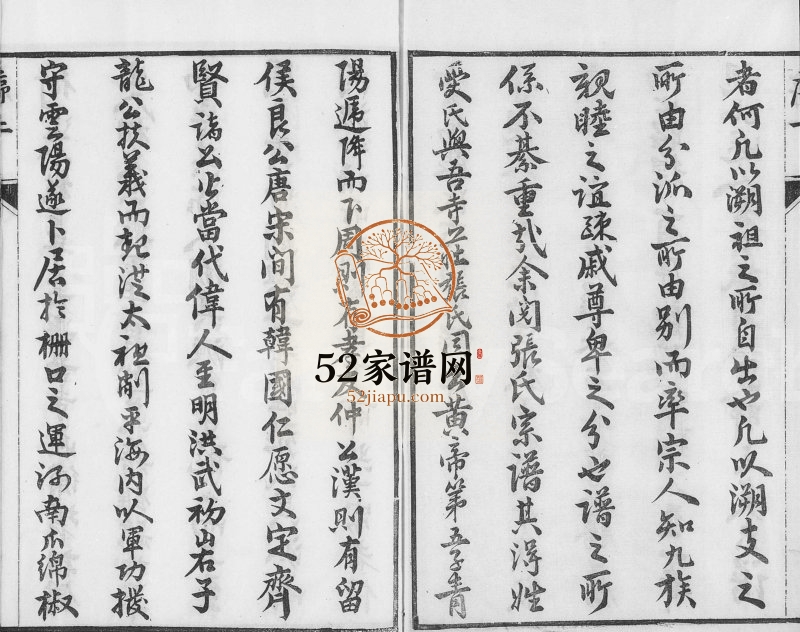 者何凡以溯祖之所自出也凡以溯支之
所由分派之所由别而率宗人知九族
親睦之誼疎戚尊卑之分也譜之所
係不綦重哉余閱張氏宗譜其淂姓
受氏與吾寺莊張氏同出黄帝第五子青
陽遞降而下周則有孝友仲公漢則有留
侯良公唐宋間有韓國仁愿文定齊
賢諸公皆當代偉人至明洪武初山右子
龍公扶義而起洪太祖削平海内以軍功擢
守雲陽遂卜居於栅口之運河南木綿椒
序一
序二
52家谱网
52jiapu.com